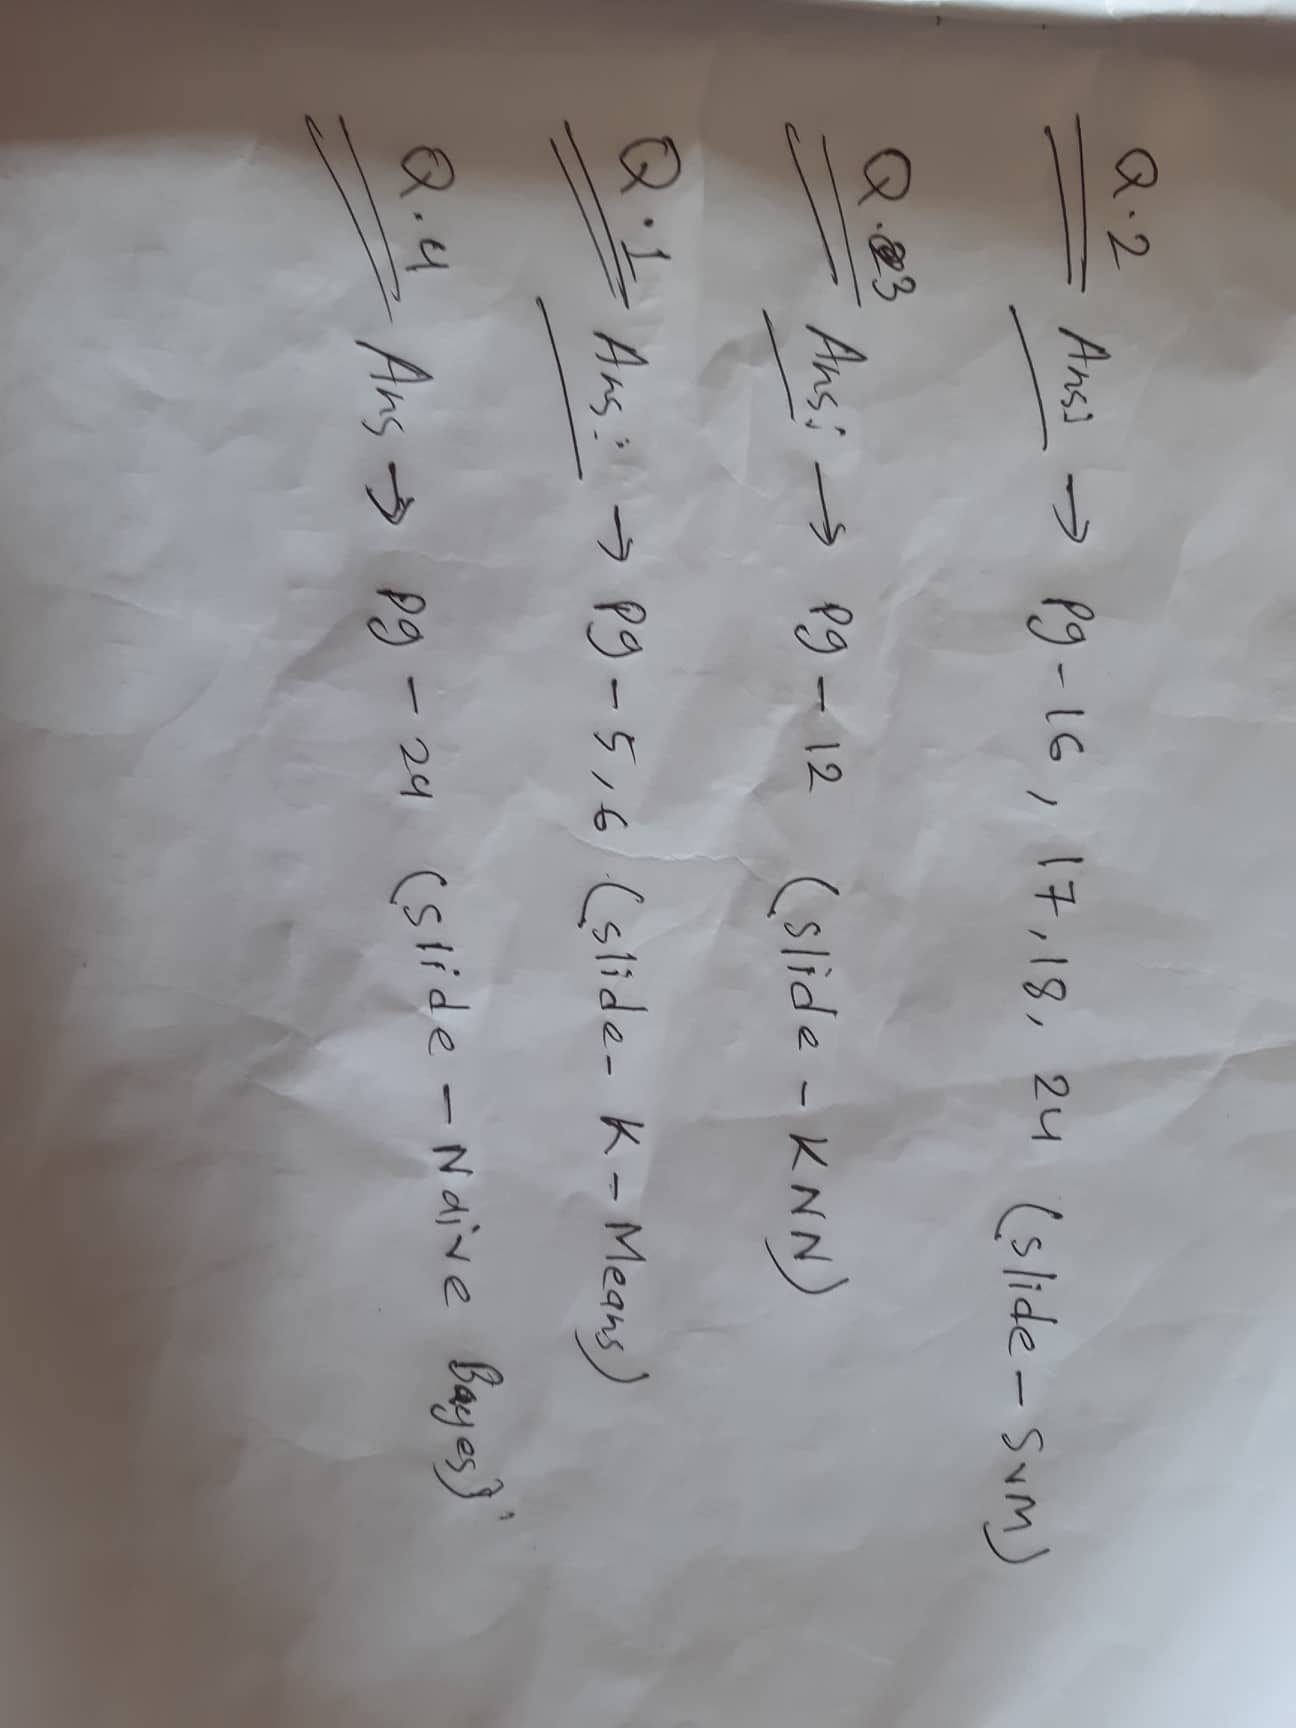 Q.2 Ans: → Pg-16, 17, 18, 24 (slide-SVM)
Q.3 Ans: → Pg-12 (slide-KNN)
Q.1 Ans: → Pg-5,6 (slide-K-Means)
Q.4 Ans → Pg-24 (slide-Naive Bayes)